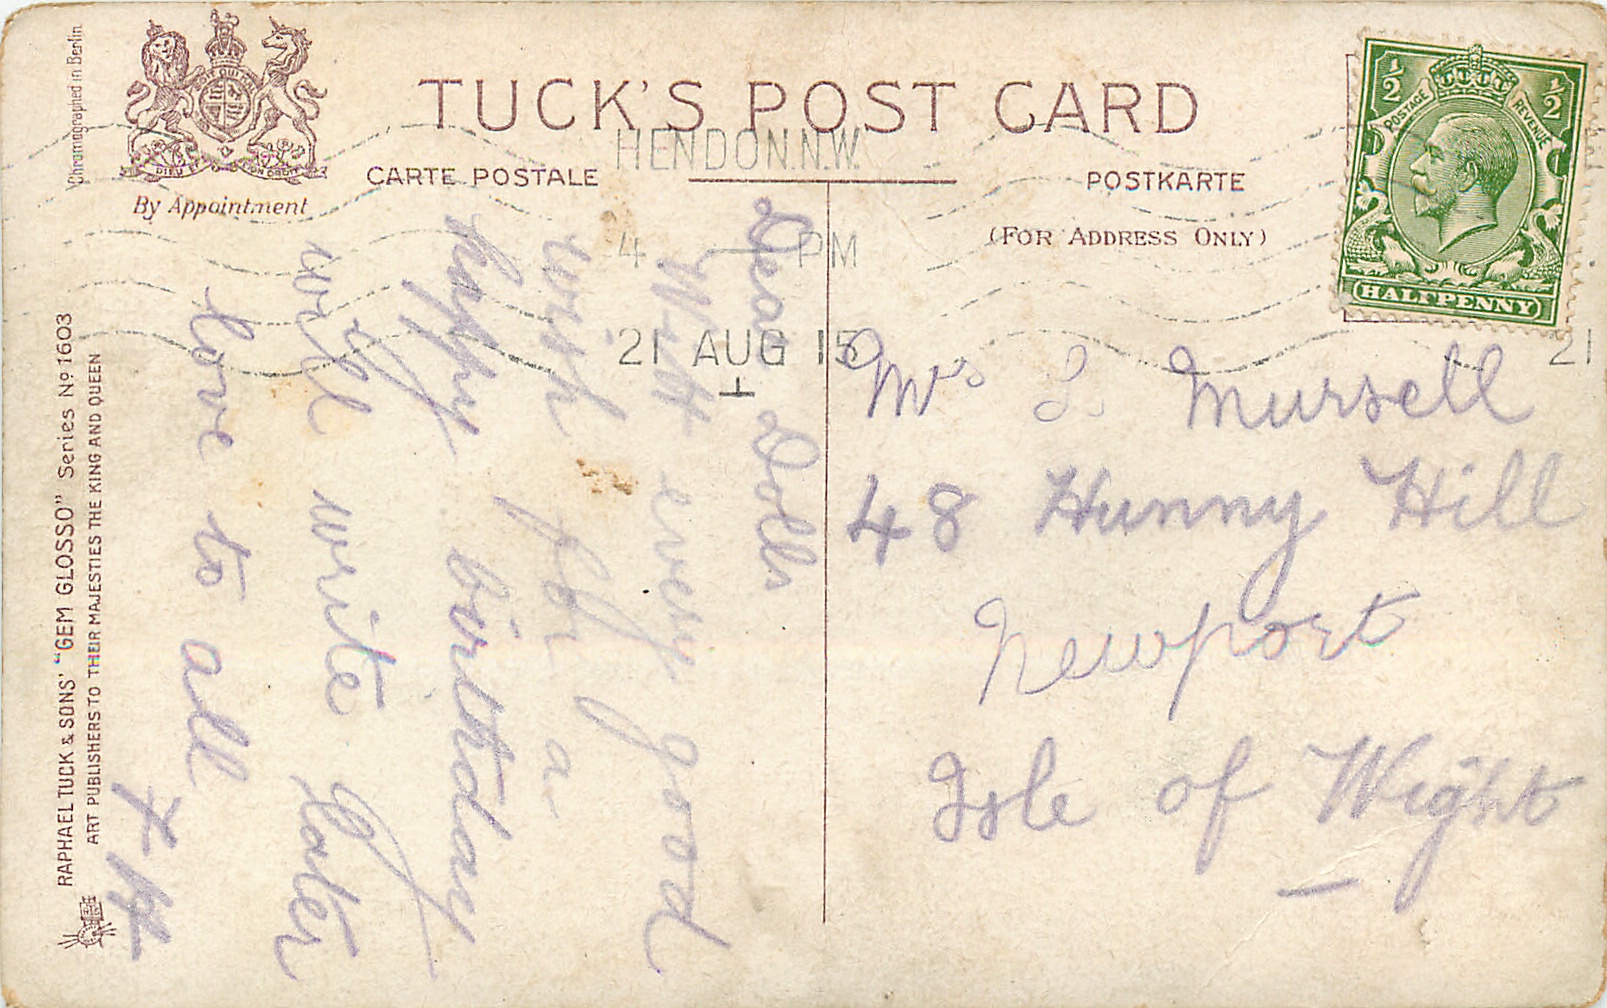 Chromographed in Berlin
DIEU ET MON DROIT
By Appointment
TUCK'S POST CARD
CARTE POSTALE
POSTKARTE
(FOR ADDRESS ONLY)
½ ½
POSTAGE REVENUE
HALFPENNY
HENDON.N.W.
4 PM
21 AUG 15
21
RAPHAEL TUCK & SONS' "GEM GLOSSO" Series Nº 1603
ART PUBLISHERS TO THEIR MAJESTIES THE KING AND QUEEN
Dear Dolls
With every good
wish for a
happy birthday
will write later
love to all
Mrs Mursell
48 Hunny Hill
Newport
Isle of Wight